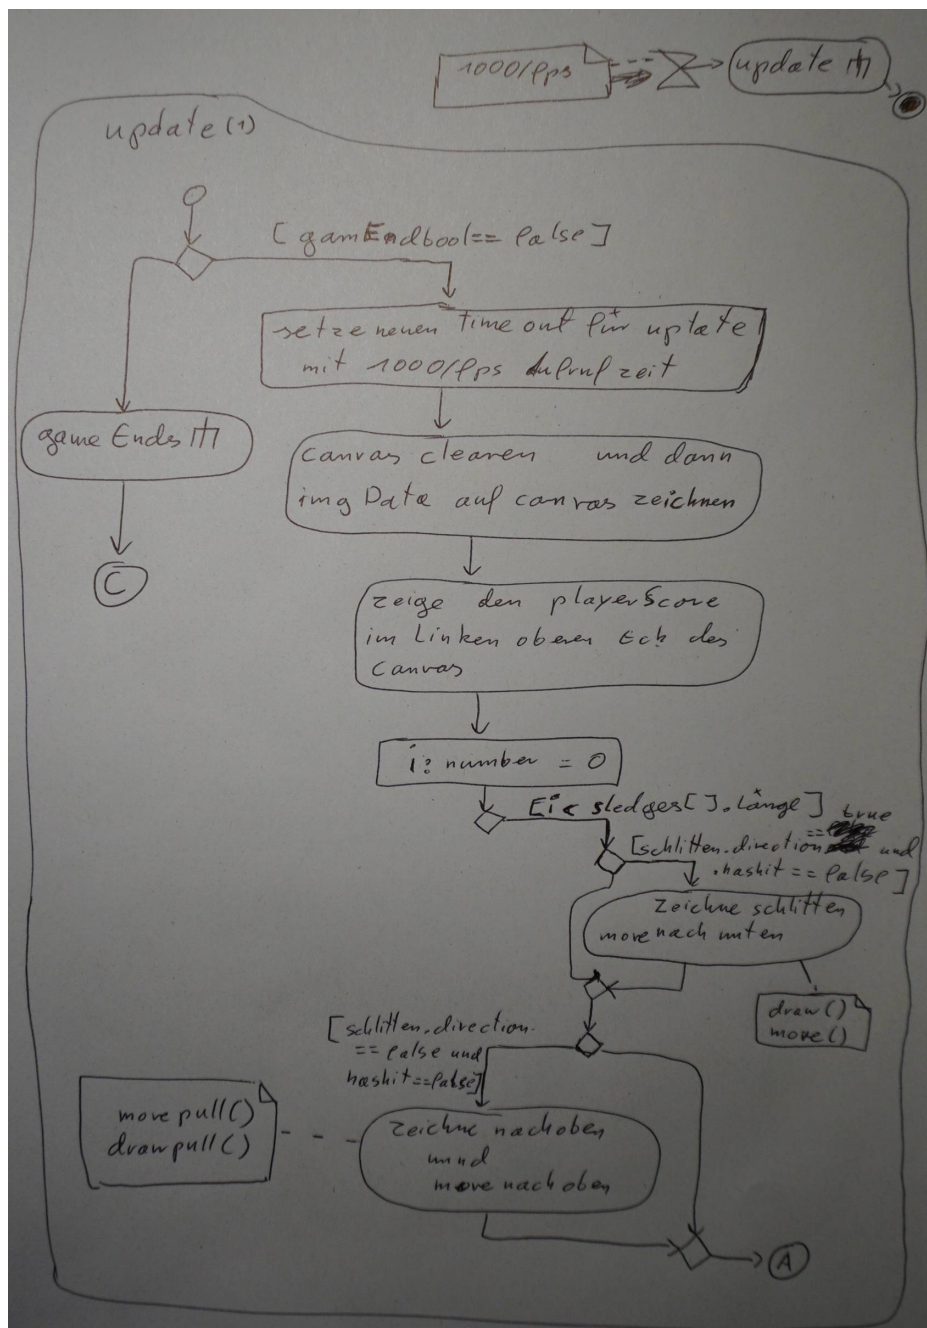 1000/fps
update
update (1)
[gamEndbool == false]
setze neuen Time out für uptate
mit 1000/fps Aufruf zeit
game Ends
canvas clearen und dann
img Data auf canvas zeichnen
C
zeige den playerScore
im Linken oberen Eck des
Canvas
i: number = 0
[i < sledges[].Länge]
true
[schlitten.direction == und
.hashit == false]
zeichne schlitten
move nach unten
draw()
move()
[schlitten.direction
== false und
hashit == false]
move pull()
draw pull()
zeichne nach oben
unnd
move nach oben
A